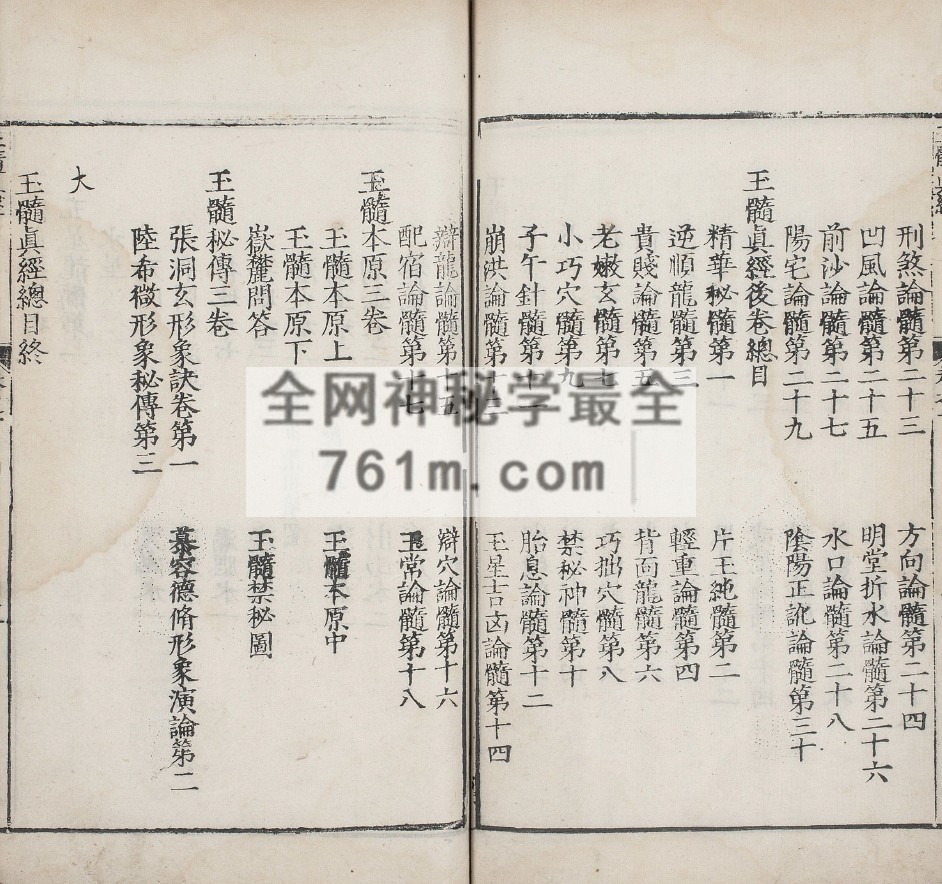 刑煞論髓第二十三
方向論髓第二十四
凹風論髓第二十五
明堂折水論髓第二十六
前沙論髓第二十七
水口論髓第二十八
陽宅論髓第二十九
陰陽正訛論髓第三十
玉髓眞經後卷總目
精華秘髓第一
片玉純髓第二
逆順龍論髓第三
輕重論髓第四
貴賤論髓第五
背向龍論髓第六
老嫩玄髓第七
巧拙穴髓第八
小巧穴髓第九
禁秘神髓第十
子午針髓第十一
胎息論髓第十二
崩洪論髓第十三
玉星吉凶論髓第十四
辯龍論髓第十五
辯穴論髓第十六
配宿論髓第十七
玉常論髓第十八
玉髓本原三卷
玉髓本原上
玉髓本原中
玉髓本原下
嶽麓問答
玉髓禁秘圖
玉髓秘傳三卷
張洞玄形象訣卷第一
慕容德脩形象演論第二
陸希微形象秘傳第三
大
玉髓眞經總目終
全网神秘学最全
761m.com